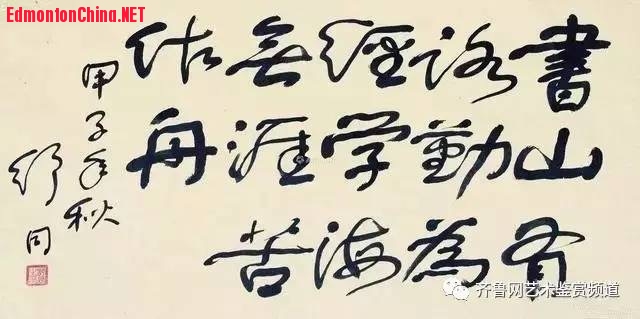 EdmontonChina.NET
書山有
路勤為
徑学海
無涯苦
作舟
甲子年秋
舒同
齐鲁网艺术鉴赏频道